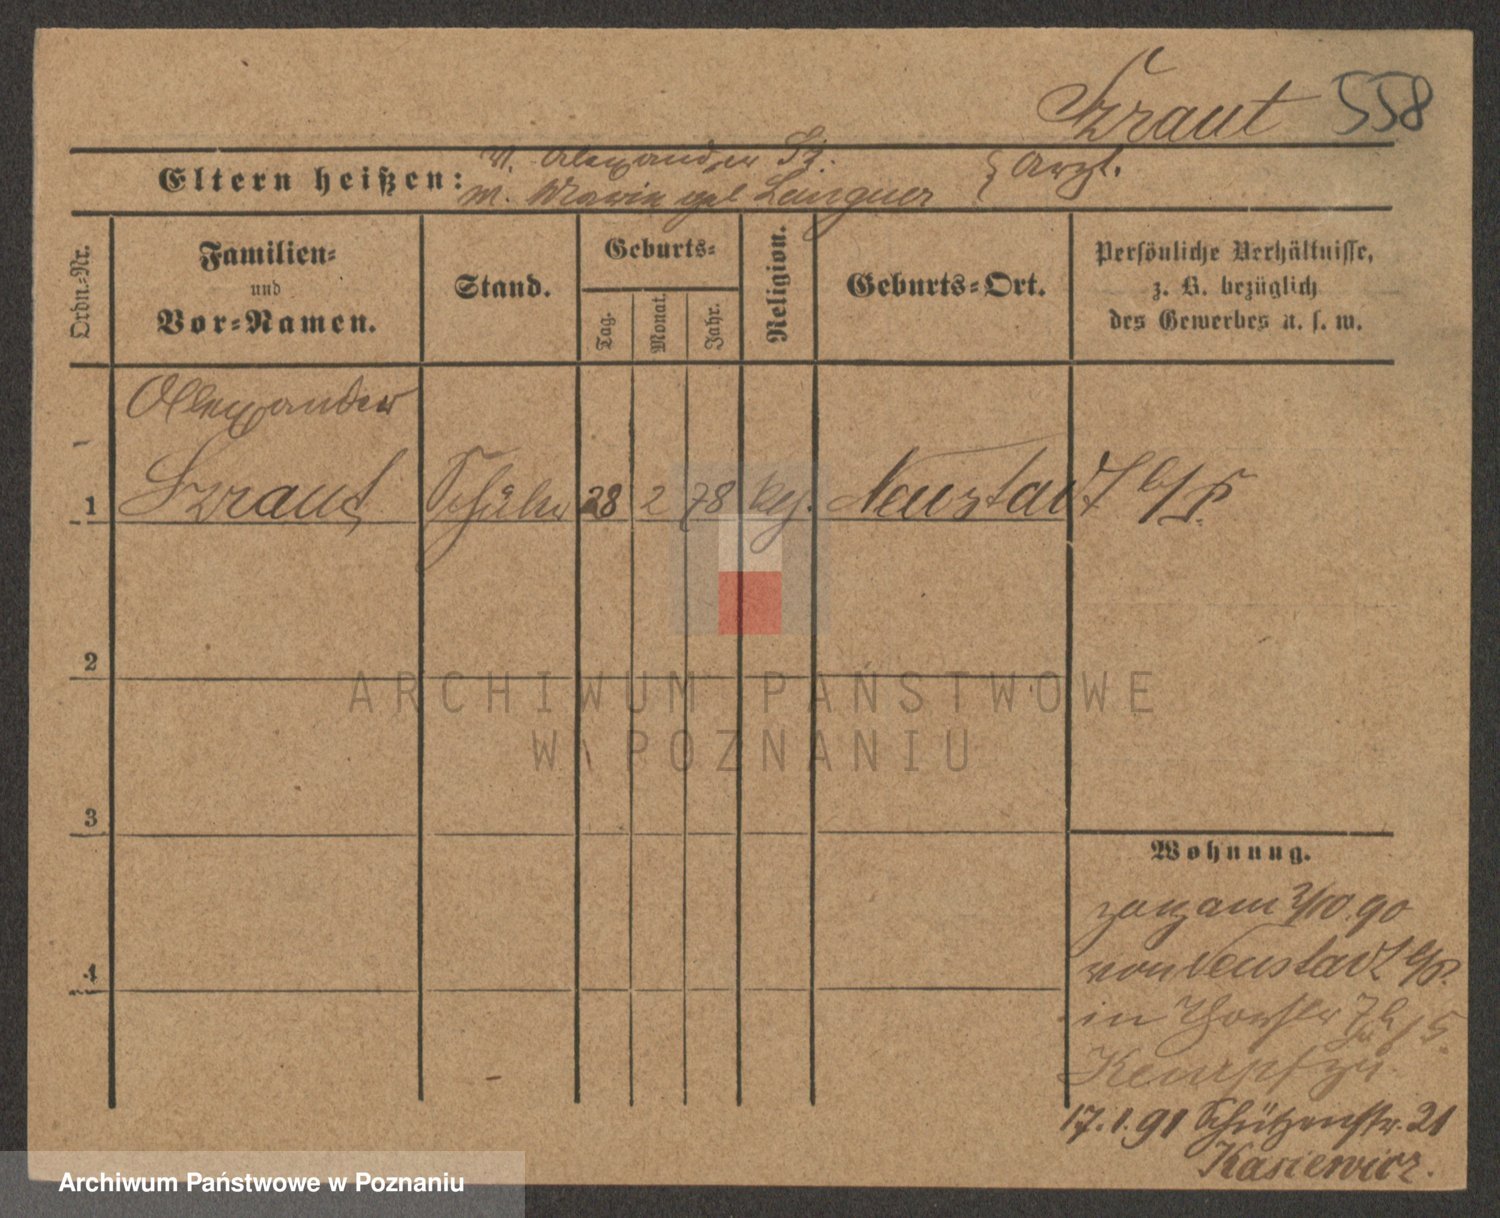 Szraut 558
Eltern heißen:
V. Alexander Sz.
M. Maria geb Languer } Arzt.
Ordn.-Nr.
Familien-
und
Vor-Namen.
Stand.
Geburts-
Tag.
Monat.
Jahr.
Religion.
Geburts-Ort.
Persönliche Verhältnisse,
z. B. bezüglich
des Gewerbes u. s. w.
Alexander
1 Szraut Schüler 28 2 78 kth. Neustadt b/P
2
3
4
Wohnung.
zog am 2/10 90
von Neustadt b/P.
in
Kempf zu.
17.1.91 Schützenstr. 21
Kasiewicz.
ARCHIWUM PAŃSTWOWE
W POZNANIU
Archiwum Państwowe w Poznaniu